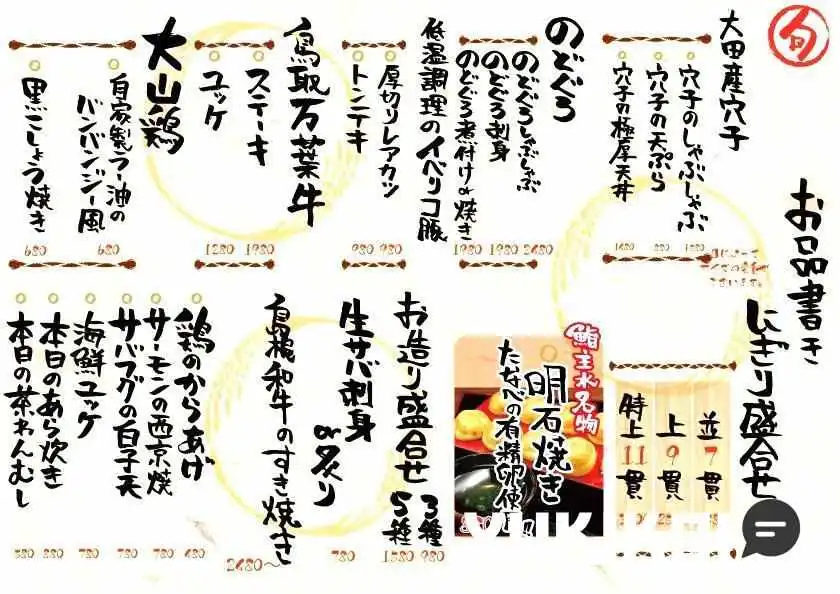 旬
お品書き
大田産穴子
穴子のしゃぶしゃぶ
穴子の天ぷら
穴子の極厚天丼
のどぐろ
のどぐろしゃぶしゃぶ 2480
のどぐろ刺身 1980
のどぐろ煮付けor焼き 1980
低温調理のイベリコ豚
厚切りレアカツ 980
トンテキ 980
鳥取万葉牛
ステーキ 1980
ユッケ 1280
大山鶏
自家製ラー油の
バンバンジー風 680
黒こしょう焼き 680
にぎり盛合せ
並7貫
上9貫
特上11貫
鮨主水名物
明石焼き
たなべの有精卵使用
お造り盛合せ
3種 980
5種 1580
生サバ刺身
or炙り 780
島根和牛のすき焼き 2480〜
鶏のからあげ 480
サーモンの西京焼 780
サバフグの白子天 780
海鮮ユッケ 780
本日のあら炊き 880
本日の茶わんむし 580